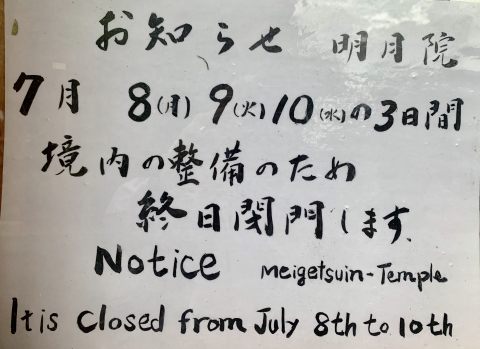 お知らせ 明月院
7月 8(月)9(火)10(水)の3日間
境内の整備のため
終日閉門します。
Notice Meigetsuin-Temple
It is closed from July 8th to 10th